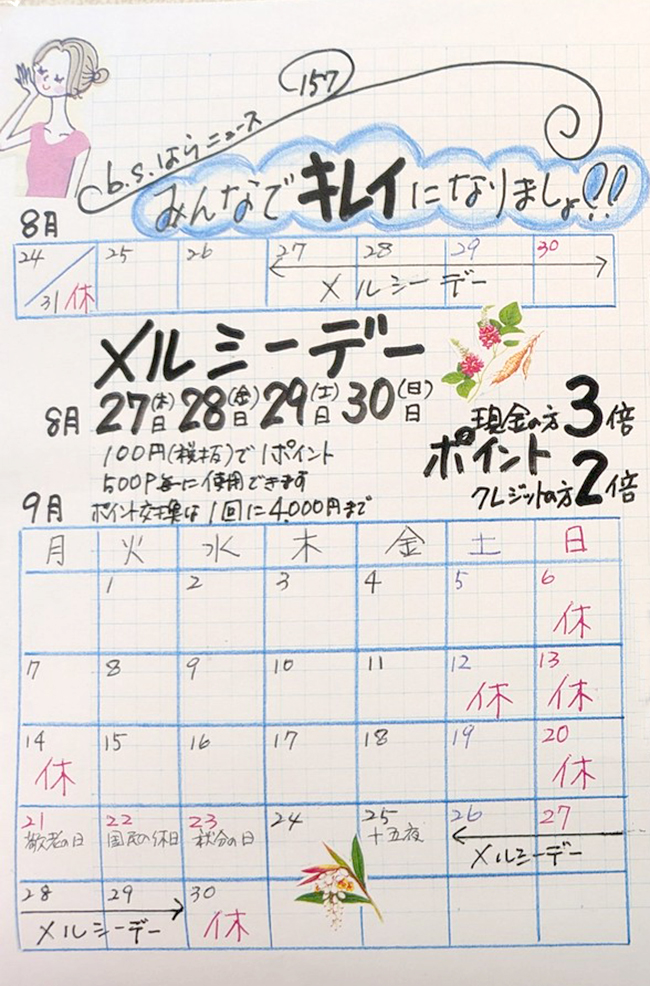 157
b.s.はらニュース
みんなでキレイになりましょ!!
8月
24 25 26 27 28 29 30
31 休
メルシーデー
メルシーデー
8月 27(木)日 28(金)日 29(土)日 30(日)日
100円(税抜)で1ポイント
500P毎に使用できます
ポイント交換は1回に4,000円まで
現金の方 3倍
ポイント
クレジットの方 2倍
9月
月 火 水 木 金 土 日
1 2 3 4 5 6
休
7 8 9 10 11 12 13
休 休
14 15 16 17 18 19 20
休 休
21 22 23 24 25 26 27
敬老の日 国民の休日 秋分の日 十五夜 メルシーデー
28 29 30
メルシーデー 休